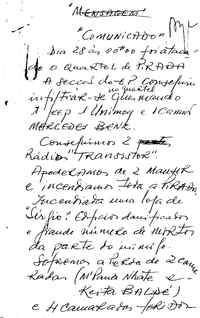 "MENSAGEM"
"COMUNICADO"
Dia 28 às 00h00 foi ataca-
do o quartel de PIRADA
A secção do E.P. conseguiu
infiltrar-se no quartel Queimando
1 Jeep 1 Unimog e 1 camião
MERCEDES BENZ.
Conseguimos 2
Rádios "TRANSISTOR"
Apoderamos de 2 MAUSER
e incendiamos toda a PIRADA
Incendiada uma loja de
Sérgio. Edifícios danificados
e grande número de MORTOS
da parte do inimigo.
Sofremos a perda de 2 cama-
radas (M'Paulo Nhate e
Keita BALDÉ)
e 4 camaradas feridos